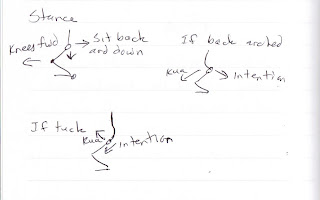 Stance
Knees fwd
Sit back
and down
If back arched
Kua
Intention
If tuck
Kua
intention